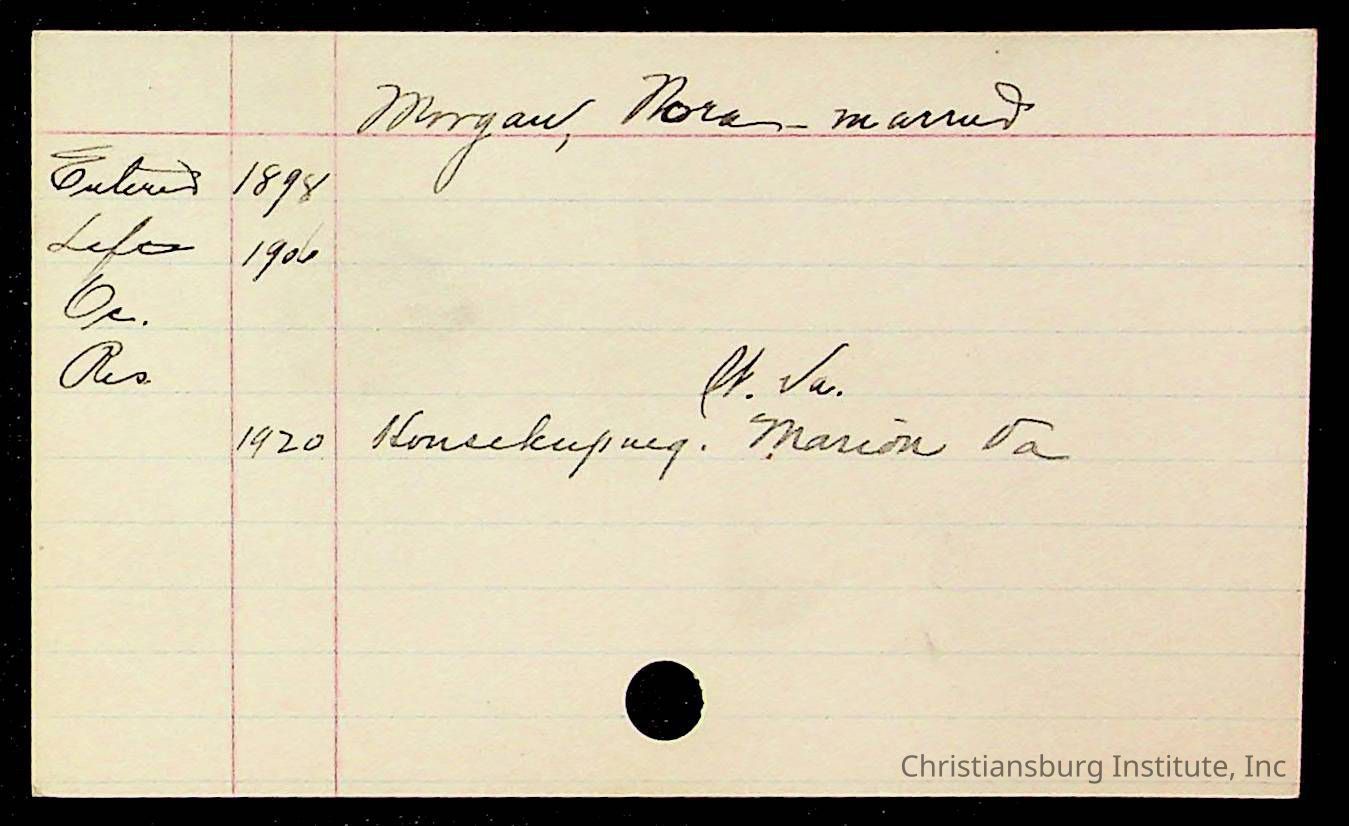 Morgan, Nora - married
Entered 1898
Left 1906
Oc.
Res
Va.
1920 Housekeeping. Marion Va
Christiansburg Institute, Inc